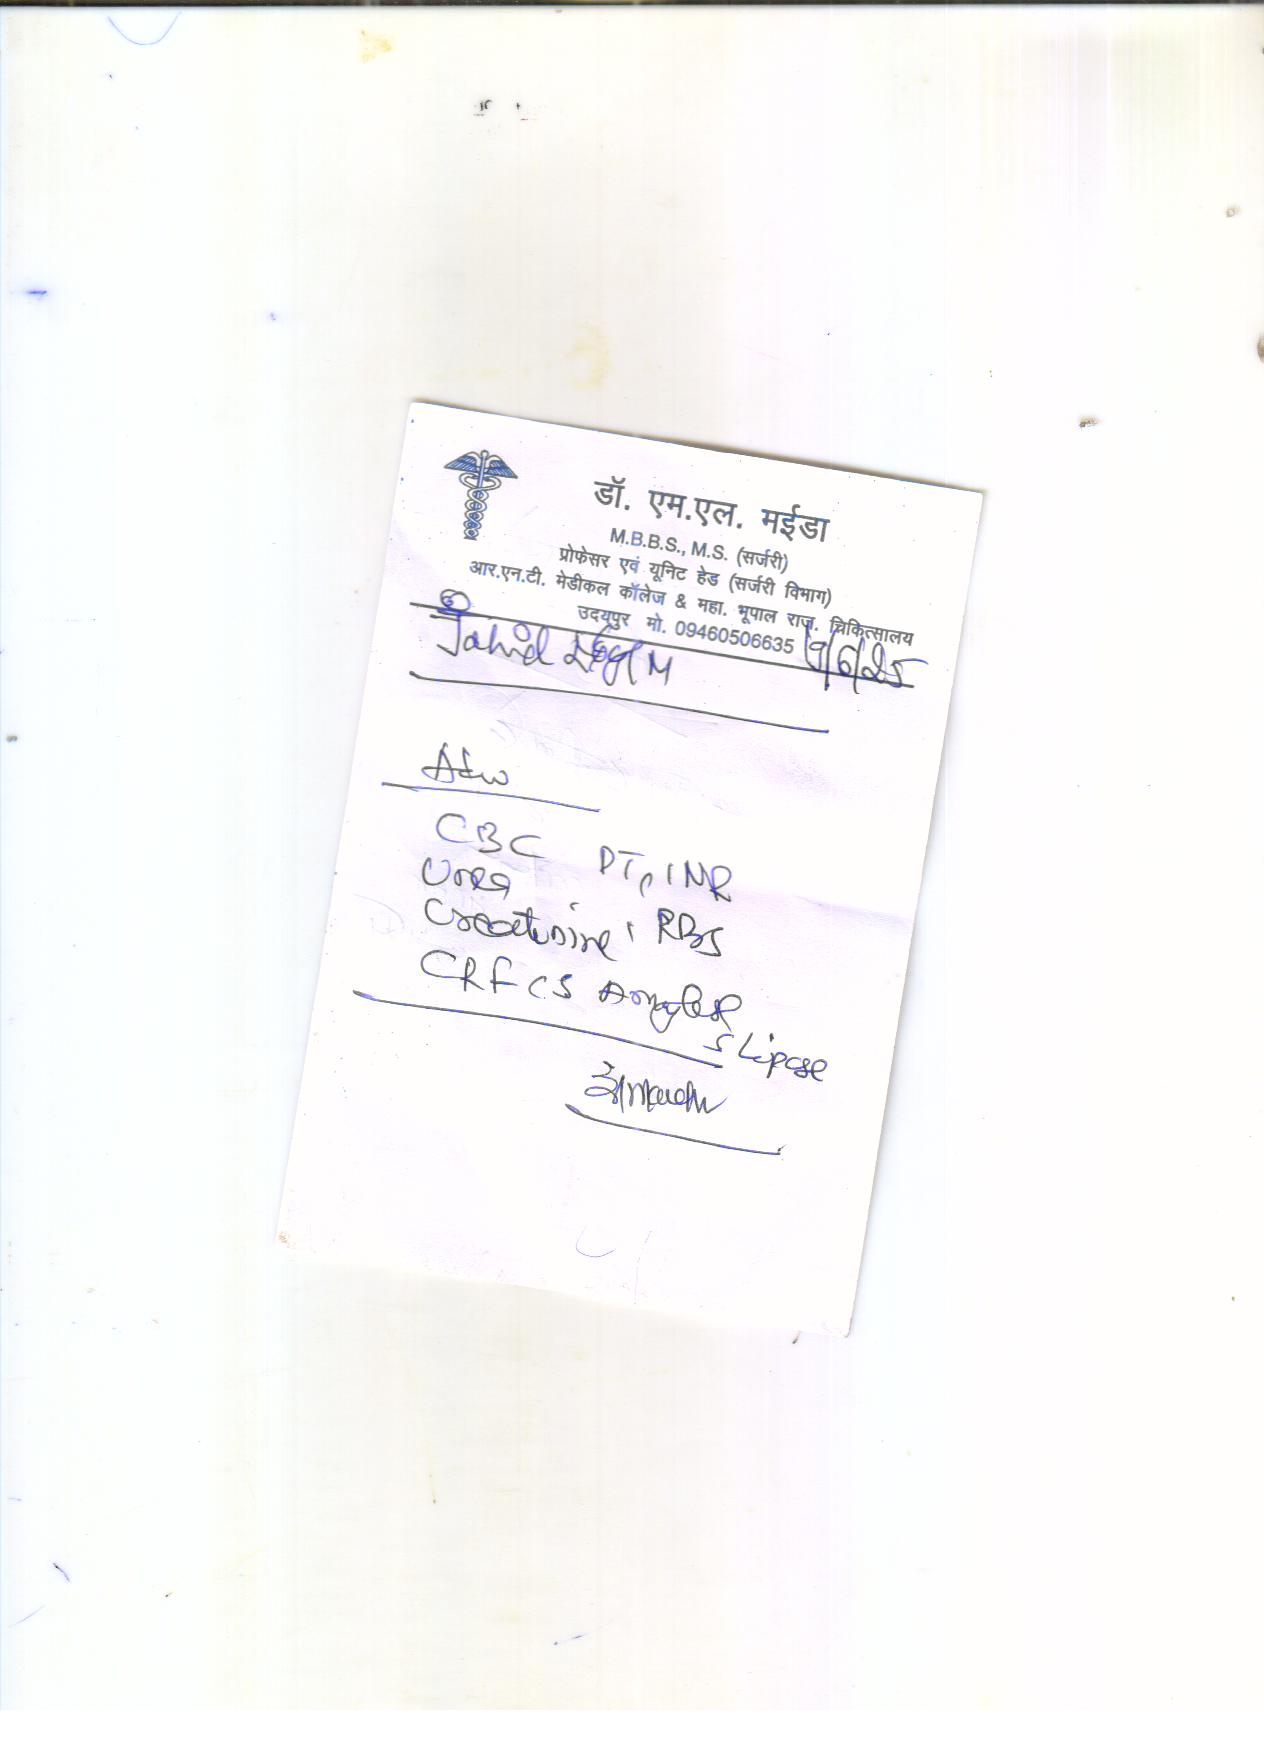 डॉ. एम.एल. मईडा
M.B.B.S., M.S. (सर्जरी)
प्रोफेसर एवं यूनिट हेड (सर्जरी विभाग)
आर.एन.टी. मेडीकल कॉलेज & महा. भूपाल राज. चिकित्सालय
उदयपुर मो. 09460506635
Jahid M
Adv
CBC PT, INR
Urea
Creatinine, RBS
S Amylase
S Lipase